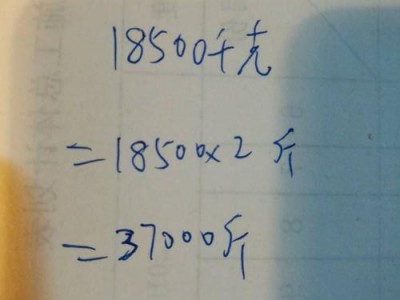 18500千克
=18500×2斤
=37000斤